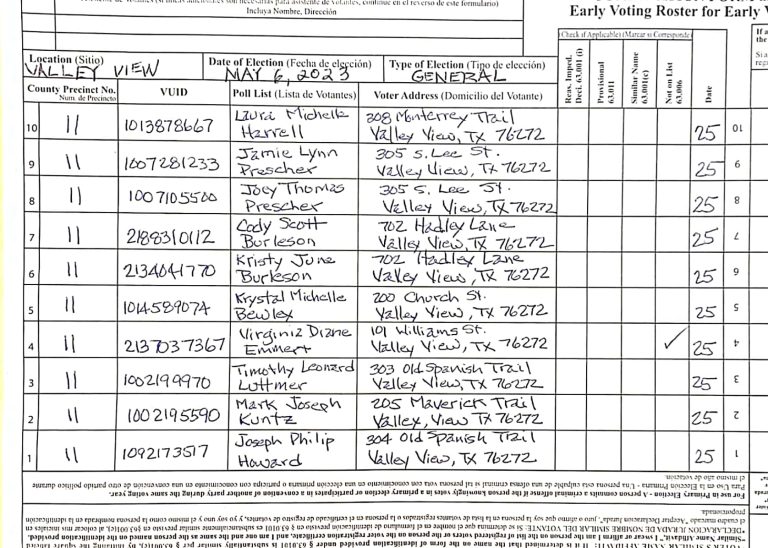 Incluya Nombre, Dirección
Early Voting Roster for Early V
Location (Sitio)
VALLEY VIEW
Date of Election (Fecha de elección)
MAY 6, 2023
Type of Election (Tipo de elección)
GENERAL
(Check if Applicable) (Marcar si Corresponde
County Precinct No.
Num. de Precincto
VUID
Poll List (Lista de Votantes)
Voter Address (Domicilio del Votante)
Reas. Imped.
Decl. 63.001 (i)
Provisional
63.011
Similar Name
63.001(c)
Not on List
63.006
Date
10 11 1013878667 Laura Michelle Harrell 308 Monterrey Trail Valley View, TX 76272 25 10
9 11 1007281233 Jamie Lynn Prescher 305 S. Lee St. Valley View, TX 76272 25 9
8 11 1007105500 Joey Thomas Prescher 305 S. Lee St. Valley View, TX 76272 25 8
7 11 2188310112 Cody Scott Burleson 702 Hadley Lane Valley View, TX 76272 25 7
6 11 2134041770 Kristy June Burleson 702 Hadley Lane Valley View, TX 76272 25 6
5 11 1014589074 Krystal Michelle Bewley 200 Church St. Valley View, TX 76272 25 5
4 11 2137037367 Virginia Diane Emmert 101 Williams St. Valley View, TX 76272 ✓ 25 4
3 11 1002199970 Timothy Leonard Luttmer 303 Old Spanish Trail Valley View, TX 76272 25 3
2 11 1002195590 Mark Joseph Kuntz 205 Maverick Trail Valley, View, TX 76272 25 2
1 11 1092173517 Joseph Philip Howard 304 Old Spanish Trail Valley View, TX 76272 25 1
For use in Primary Election - A person commits a criminal offense if the person knowingly votes in a primary election or participates in a convention of another party during the same voting year.